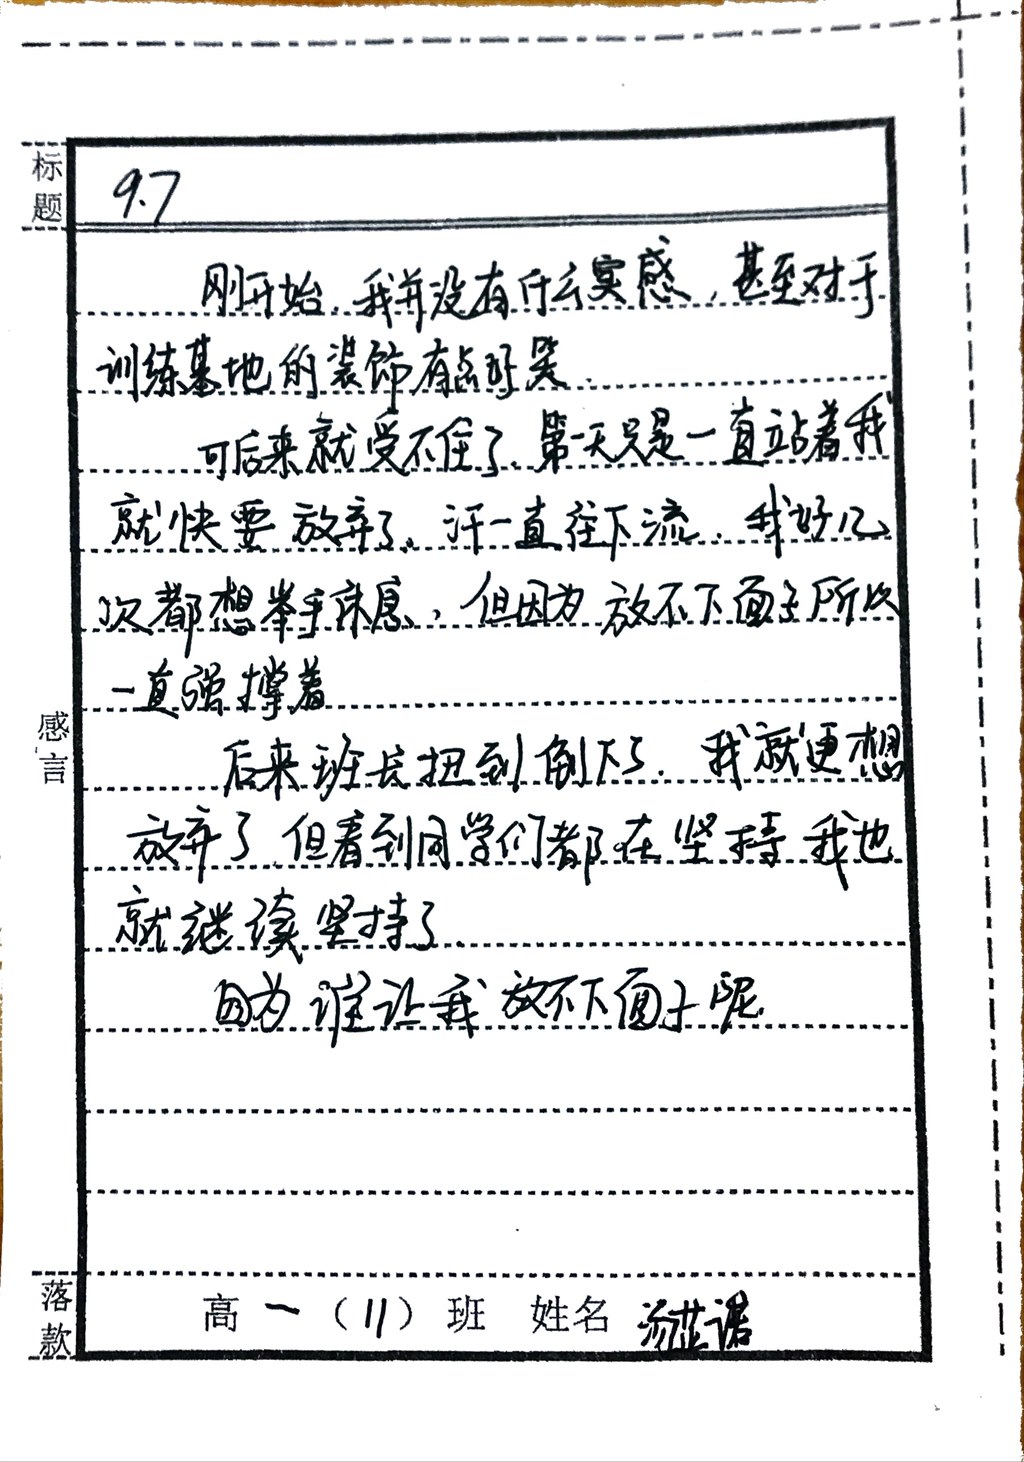 标题
9.7
刚开始,我并没有什么实感,甚至对于
训练基地的装饰有点好笑.
可后来就受不住了.第一天只是一直站着我
就快要放弃了、汗一直往下流.我好几
次都想举手休息,但因为放不下面子所以
一直强撑着
感言
后来班长扭到倒下了.我就更想
放弃了但看到同学们都在坚持我也
就继续坚持了.
因为谁让我放不下面子呢
落款
高一(11)班 姓名 汤芷诺